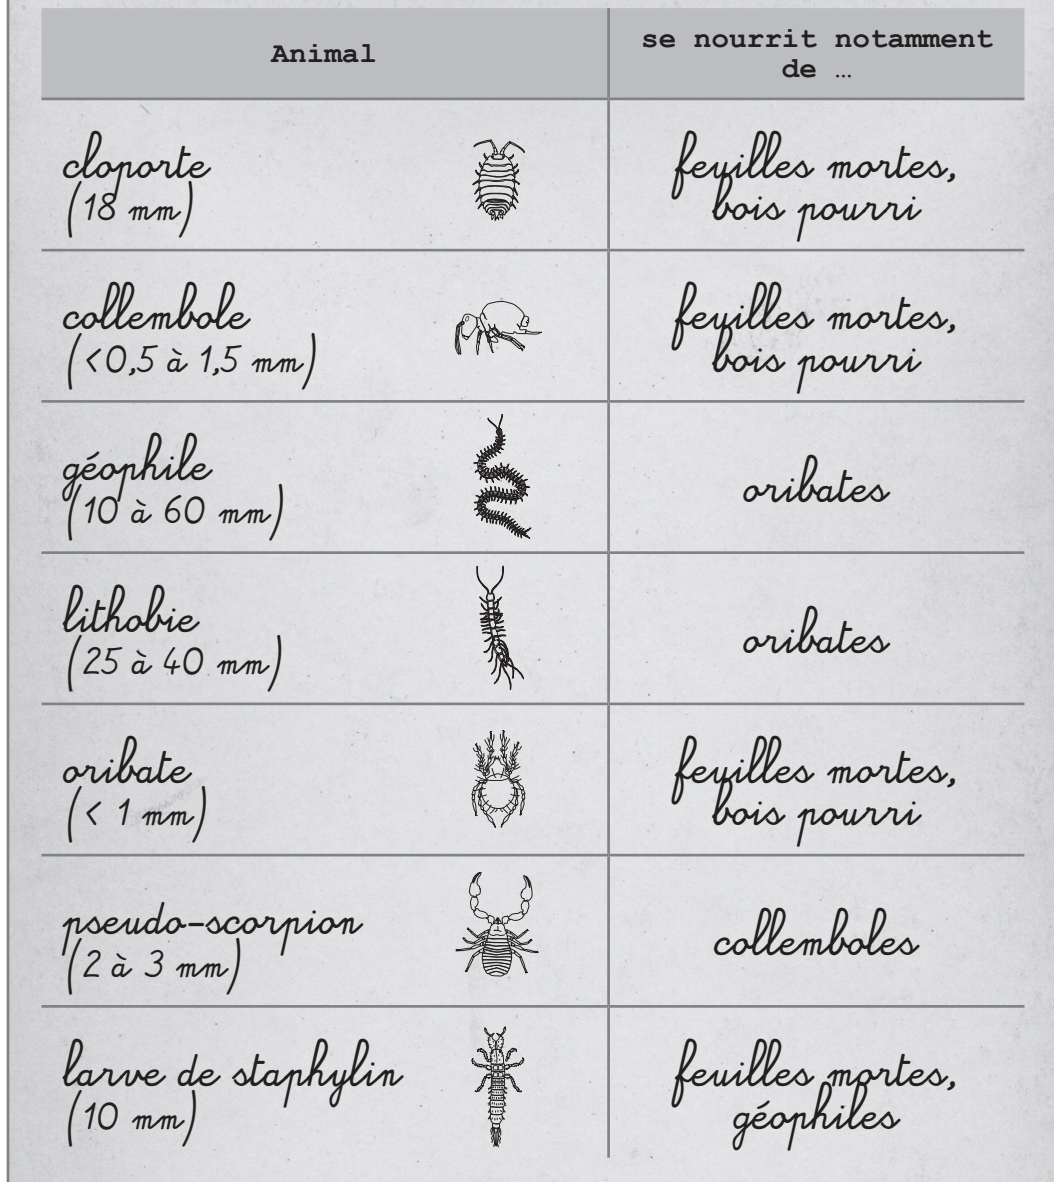 Animal
se nourrit notamment
de …
cloporte
(18 mm)
feuilles mortes,
bois pourri
collembole
(<0,5 à 1,5 mm)
feuilles mortes,
bois pourri
géophile
(10 à 60 mm)
oribates
lithobie
(25 à 40 mm)
oribates
oribate
(< 1 mm)
feuilles mortes,
bois pourri
pseudo-scorpion
(2 à 3 mm)
collemboles
larve de staphylin
(10 mm)
feuilles mortes,
géophiles